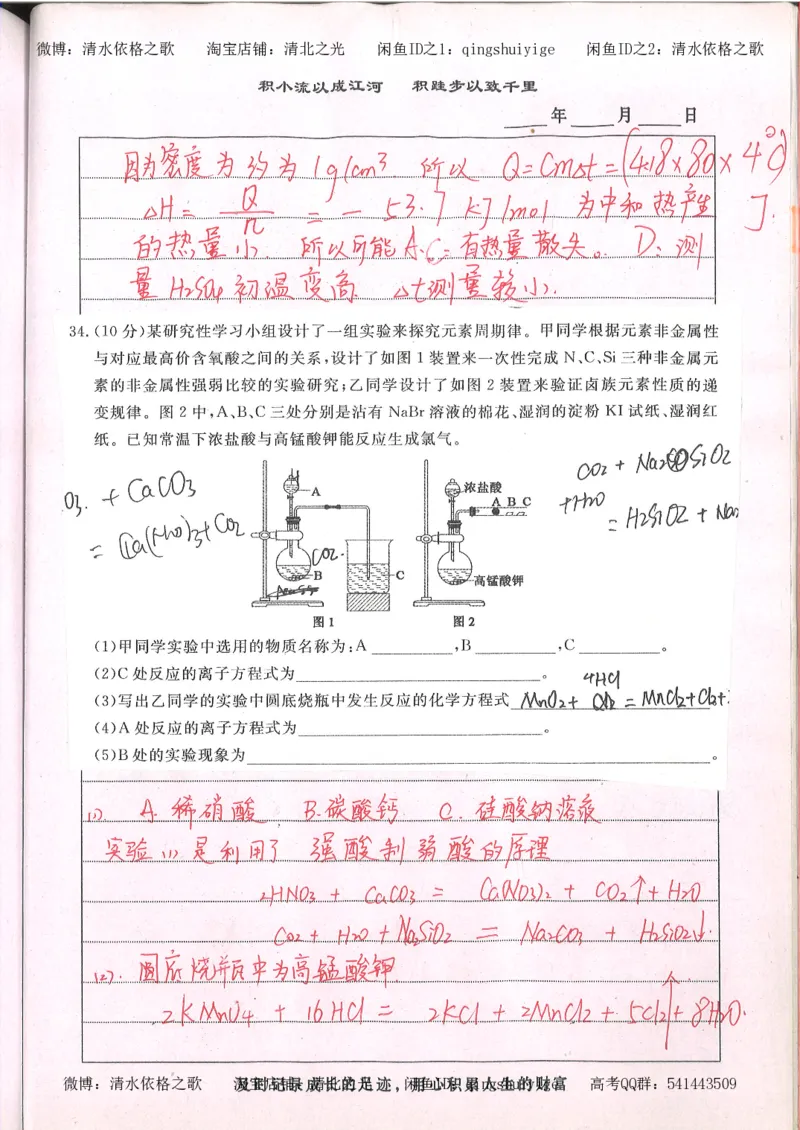 微博：清水依格之歌 淘宝店铺：清北之光 闲鱼ID之1：qingshuiyige 闲鱼ID之2：清水依格之歌
积小流以成江河 积跬步以致千里
年 月 日
因为密度为约为1g/cm³. 所以 Q=Cm△t=(4.18×80×4℃)
△H= Q/n = -53.7 kJ/mol 为中和热产生 J.
的热量小. 所以可能A.C:有热量散失。D:测
量 H₂SO₄ 初温变高 △t测量较小.
34.(10分)某研究性学习小组设计了一组实验来探究元素周期律。甲同学根据元素非金属性
与对应最高价含氧酸之间的关系,设计了如图1装置来一次性完成N、C、Si三种非金属元
素的非金属性强弱比较的实验研究;乙同学设计了如图2装置来验证卤族元素性质的递
变规律。图2中,A、B、C三处分别是沾有NaBr溶液的棉花、湿润的淀粉KI试纸、湿润红
纸。已知常温下浓盐酸与高锰酸钾能反应生成氯气。
O₃. + CaCO₃
= Ca(NO₃)₂+CO₂
CO₂ + Na₂SiO₂
+H₂O
= H₂SiO₂ + Na₂
A
CO₂.
B
C
浓盐酸
A B C
高锰酸钾
图1 图2
(1)甲同学实验中选用的物质名称为:A ,B ,C 。
(2)C处反应的离子方程式为 。
4HCl
(3)写出乙同学的实验中圆底烧瓶中发生反应的化学方程式 MnO₂+ = MnCl₂+Cl₂+
(4)A处反应的离子方程式为 。
(5)B处的实验现象为 。
(1) A.稀硝酸 B.碳酸钙 C.硅酸钠溶液
实验(1)是利用了 强酸制弱酸的原理
2HNO₃ + CaCO₃ = Ca(NO₃)₂ + CO₂↑+H₂O
CO₂ + H₂O +Na₂SiO₂ = Na₂CO₃ + H₂SiO₂↓.
(2). 圆底烧瓶中为高锰酸钾
2KMnO₄ + 16HCl = 2KCl + 2MnCl₂ + 5Cl₂↑+ 8H₂O.
微博：清水依格之歌 及时记录成长的足迹，用心积累人生的财富 高考QQ群：541443509